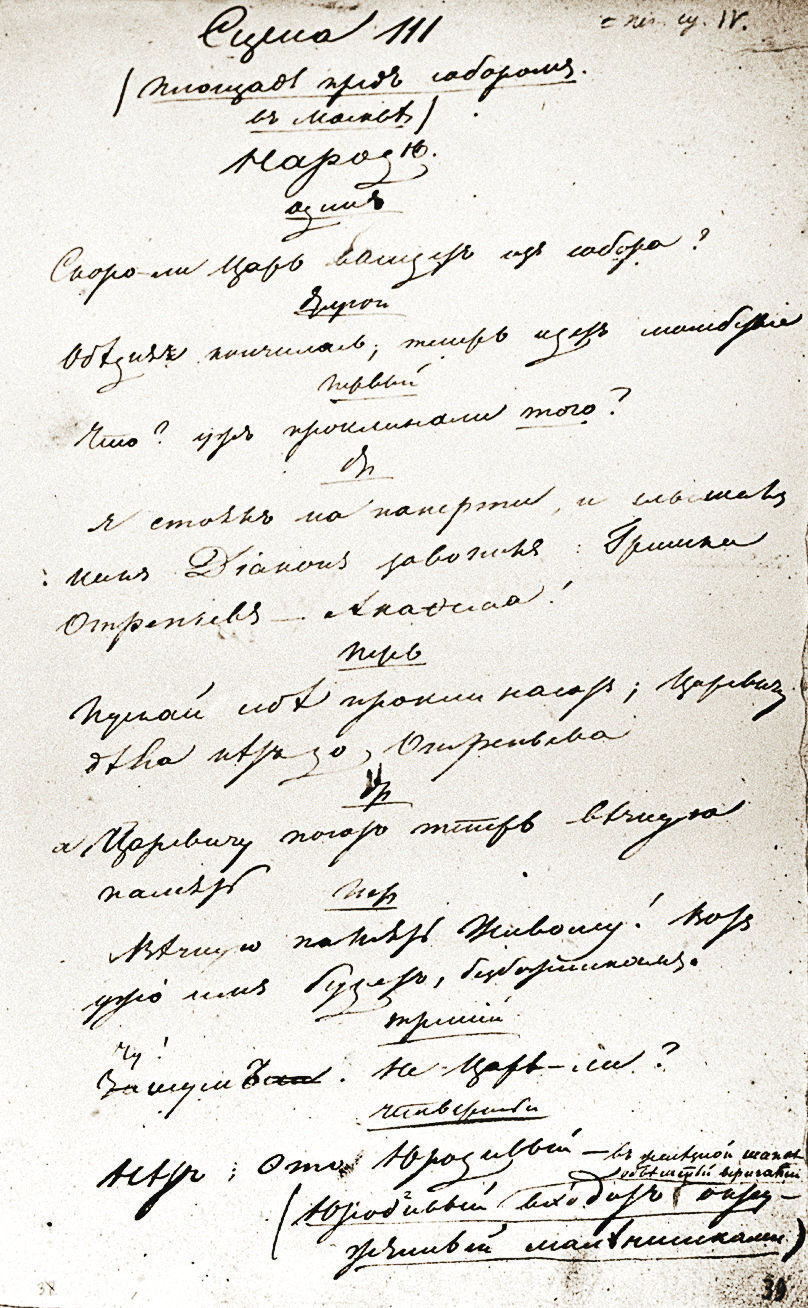 Сцена III
(площадь предъ соборомъ.
въ Москвѣ)
Народъ.
одинъ
Скоро-ли Царь выидетъ изъ собора?
другой
Обѣдня кончилась; теперь идетъ молебствие
первый
Что? ужъ проклинали того?
др
я стоялъ на паперти, и слышалъ
какъ Діаконъ завопилъ: Гришка
Отрепьевъ — Анаѳема!
перв
Пускай себѣ проклинаютъ; Царевичу
дѣла нѣтъ до Отрепьева
др
а Царевичу поютъ теперь вѣчную
память
пер
Вѣчную память живому! Вотъ
ужо имъ будетъ, безбожникамъ.
третій
Чу!
. Не Царь-ли?
четвертый
Нѣтъ; это Юродивый — въ желѣзной шапкѣ
(Юродивый входитъ окру-
женный мальчишками)
38
39